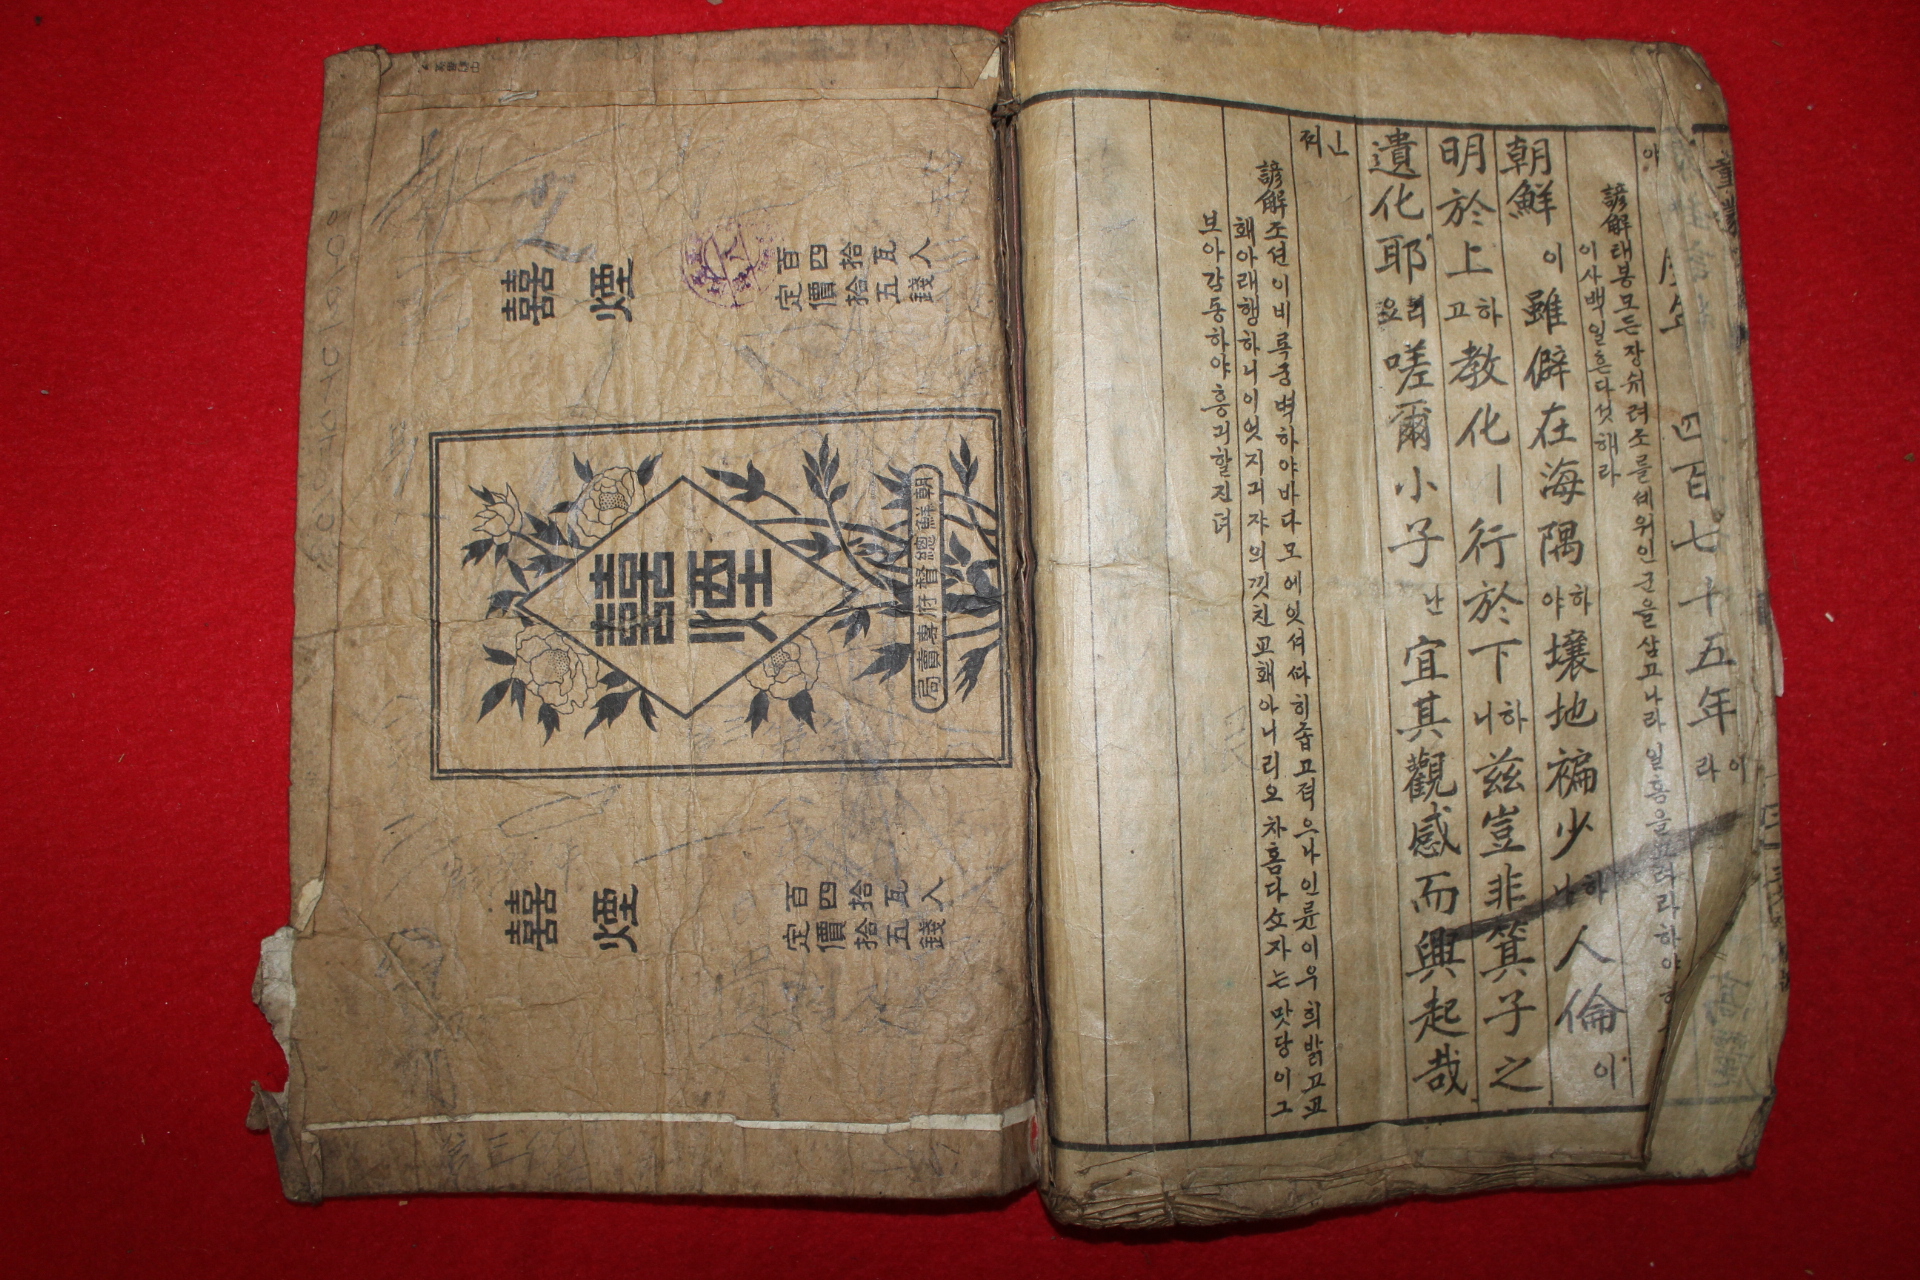 四百七十五年이라
야
諺解태봉모든장슈려조를셰위인군을삼고나라일홈을고려라하야
이사백일흔다섯해라
朝鮮이雖僻在海隅하야壤地褊少하나人倫이
明於上하고敎化ㅣ行於下하니玆豈非箕子之
遺化耶리요嗟爾小子난宜其觀感而興起哉
ㄴ져
諺解조션이비록궁벽하야바다모에잇셔따히좁고젹으나인륜이우희밝고교
홰아래행하니이엇지긔쟈의낏친교홰아니리오차홉다쇼자는맛당이그
보아감동하야흥긔할진뎌
囍煙
百四拾瓦入
定價拾五錢
囍煙
朝鮮總督府專賣局
囍煙
百四拾瓦入
定價拾五錢